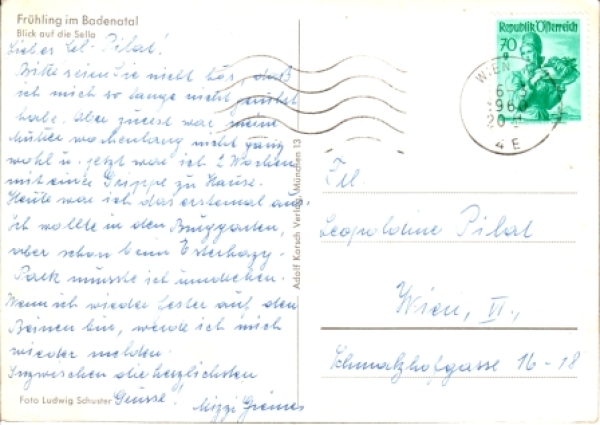 Frühling im Badenatal
Blick auf die Sella
Lieber Frl. Pilat!
Bitte seien Sie nicht bös, daß
ich mich so lange nicht gerührt
habe. Aber zuerst war meine
Mutter wochenlang nicht ganz
wohl u. jetzt war ich 2 Wochen
mit einer Grippe zu Hause.
Heute war ich das erstemal aus.
Ich wollte in den Burggarten,
aber schon beim Esterhazy-
Park musste ich umdrehen.
Wenn ich wieder fester auf den
Beinen bin, werde ich mich
wieder melden.
Inzwischen die herzlichsten
Grüsse!
Mizzi
Foto Ludwig Schuster
Adolf Korsch Verlag, München 13
Republik Österreich
70
g
WIEN
1960
20
4 E
Frl.
Leopoldine Pilat
Wien, VI.,
Schmalzhofgasse 16-18